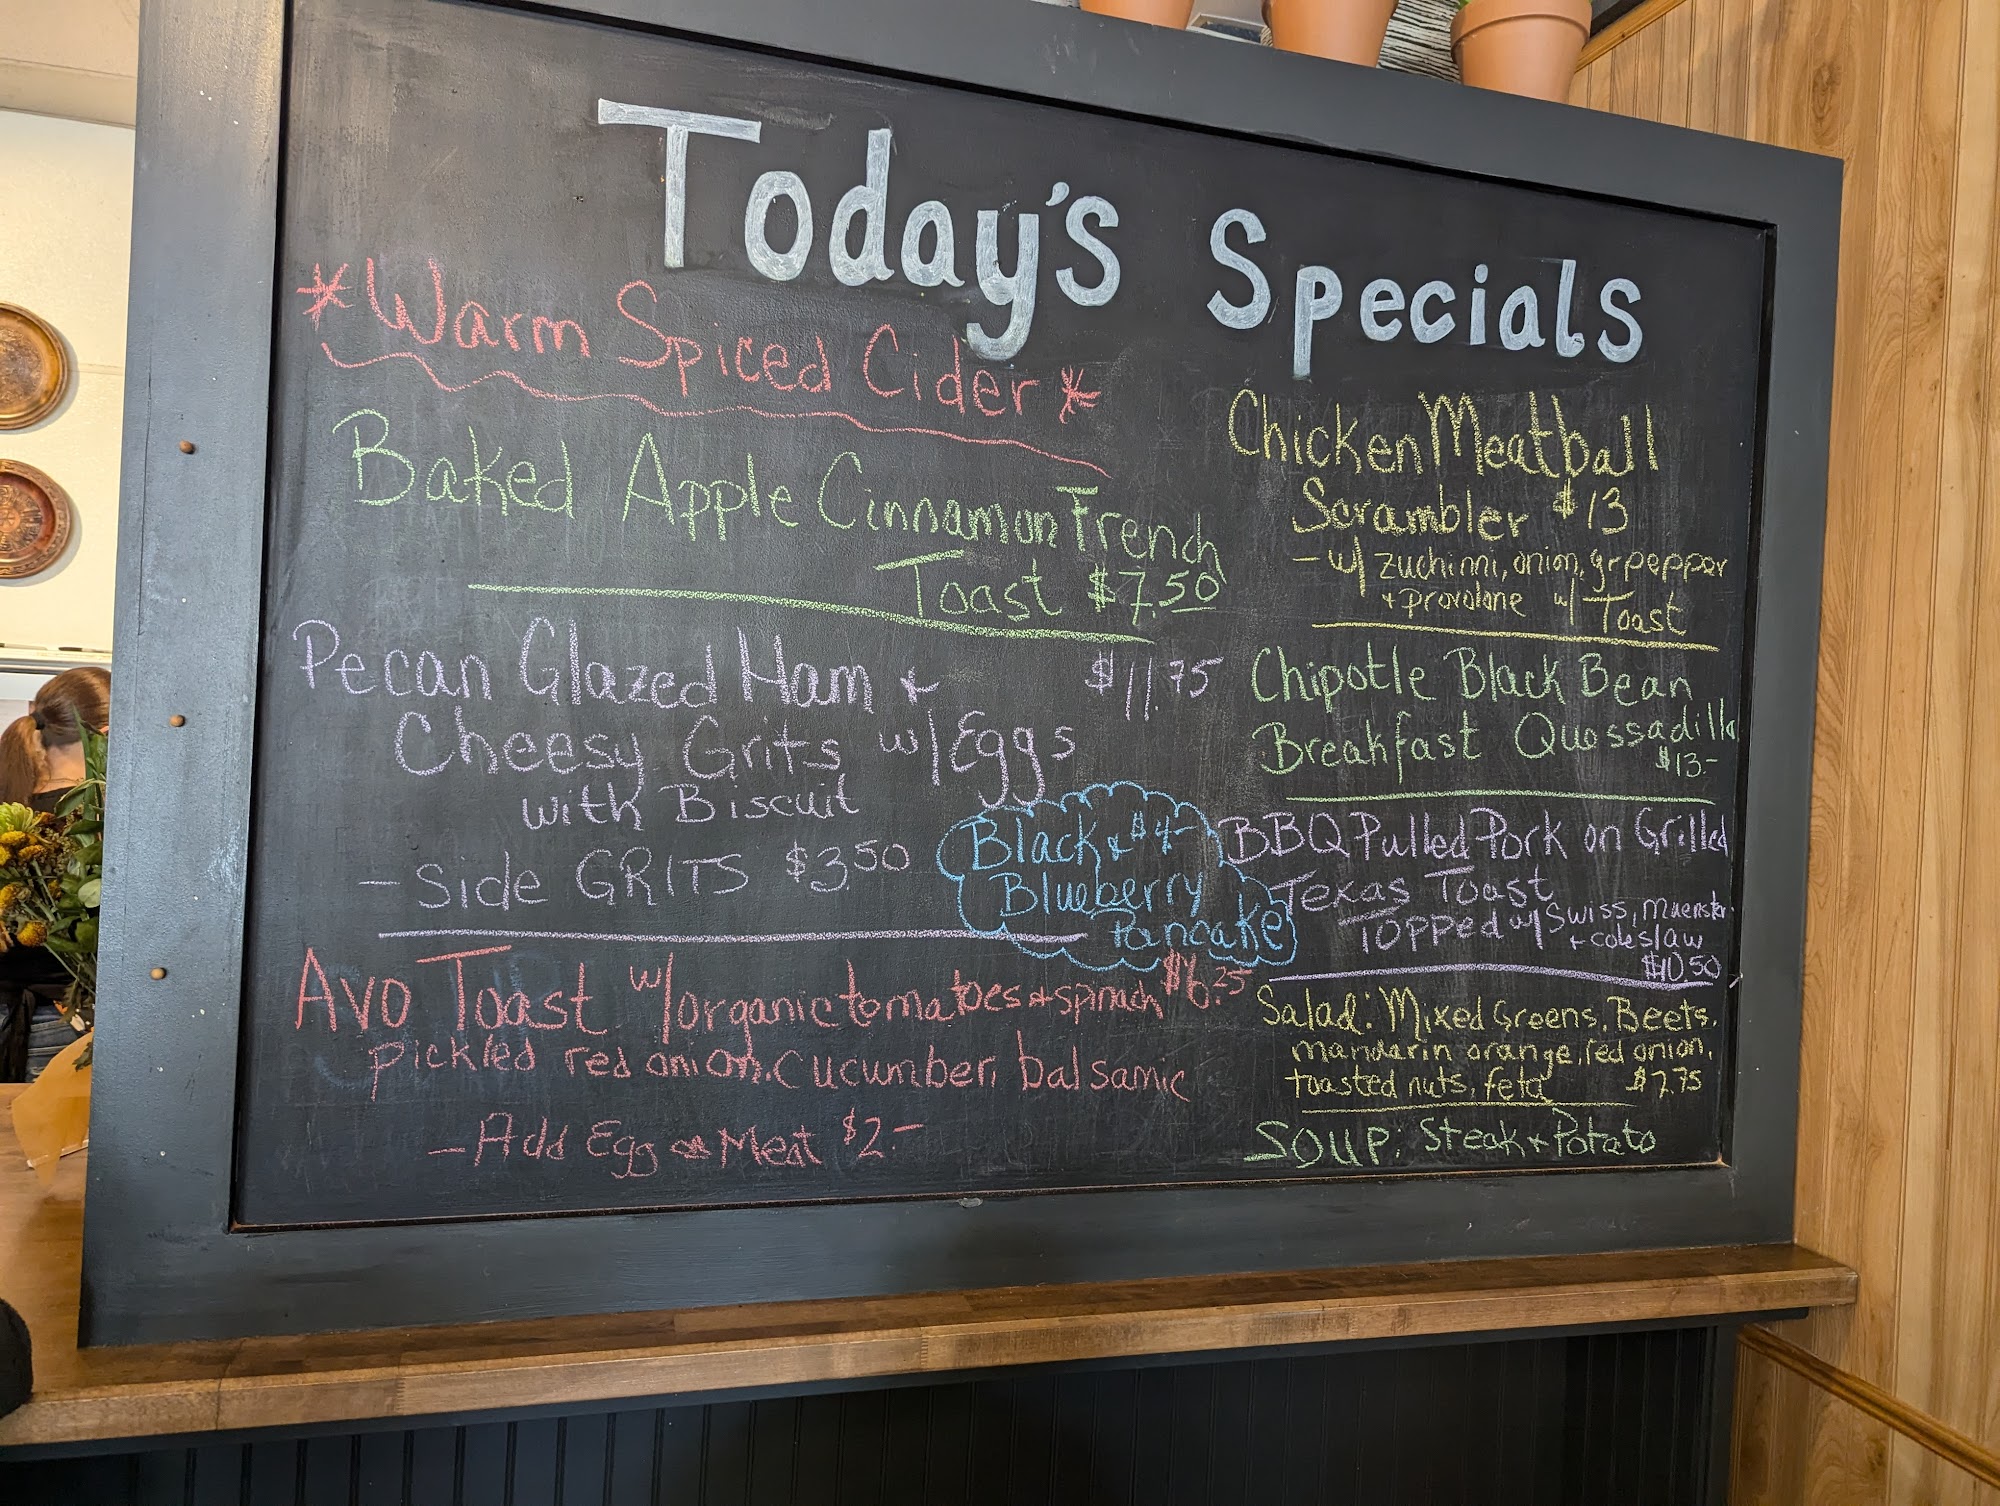 Today's Specials
*Warm Spiced Cider*
Baked Apple Cinnamon French
Toast $7.50
Pecan Glazed Ham + $11.75
Cheesy Grits w/ Eggs
with Biscuit
- Side GRITS $3.50
Avo Toast w/ organic tomatoes + spinach $6.25
pickled red onion, cucumber, balsamic
- Add Egg or Meat $2.-
Black & $4-
Blueberry
Pancake
Chicken Meatball
Scrambler $13
- w/ zuchinni, onion, gr pepper
+ provolone w/ Toast
Chipotle Black Bean
Breakfast Quessadilla
$13.-
BBQ Pulled Pork on Grilled
Texas Toast
Topped w/ Swiss, muenster
+ coleslaw
$10.50
Salad: Mixed Greens, Beets,
mandarin orange, red onion,
toasted nuts, feta $7.75
SOUP: Steak + Potato